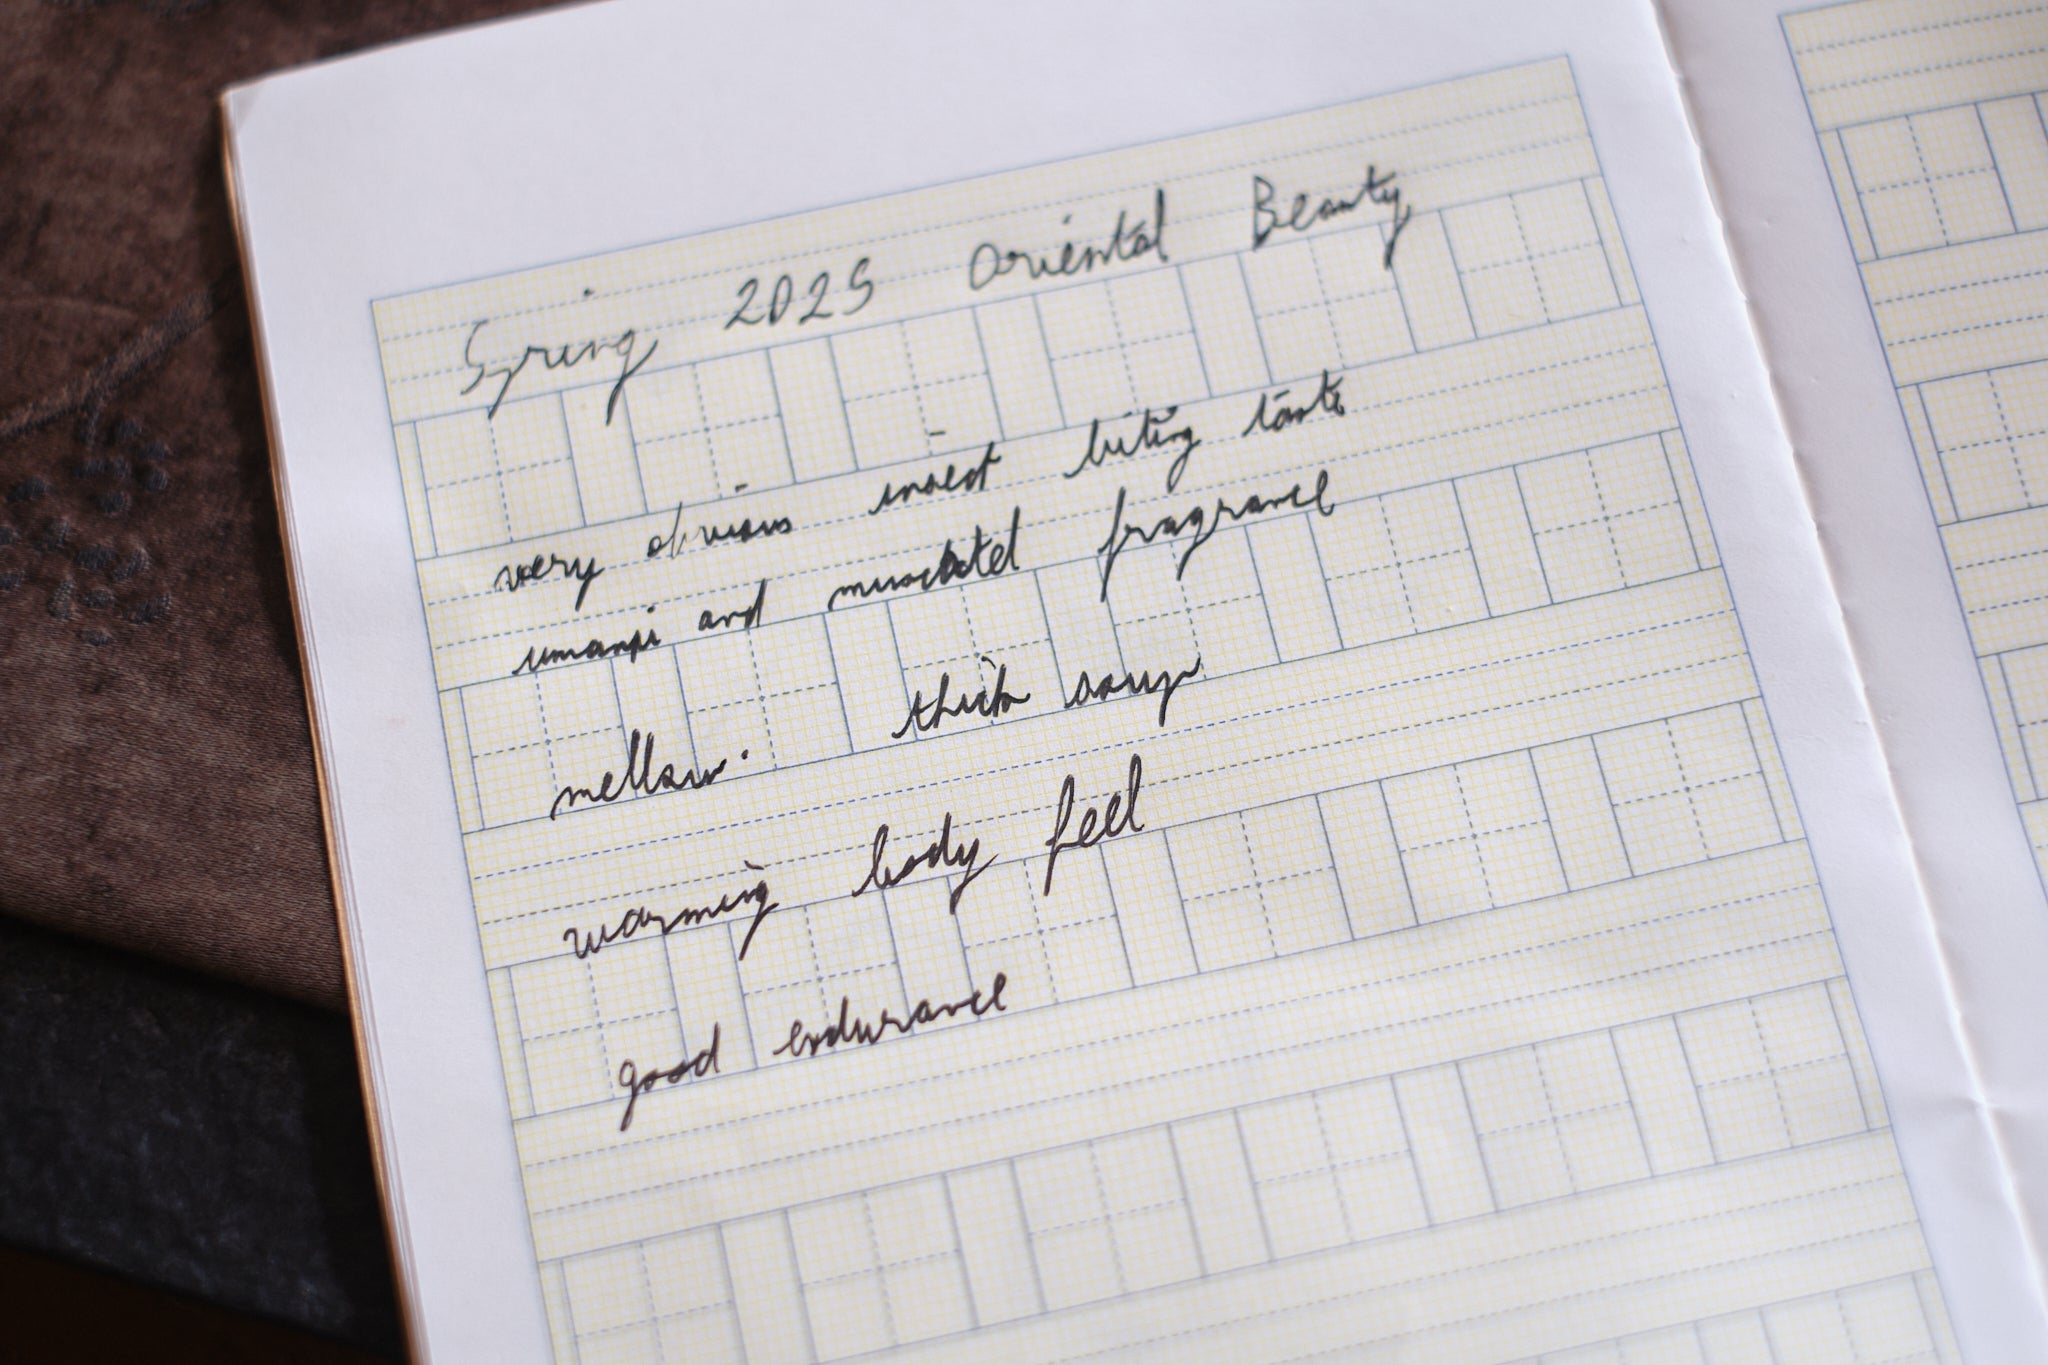 Spring 2025 Oriental Beauty
very obvious insect biting taste
umami and muscatel fragrance
mellow. thick soup
warming body feel
good endurance